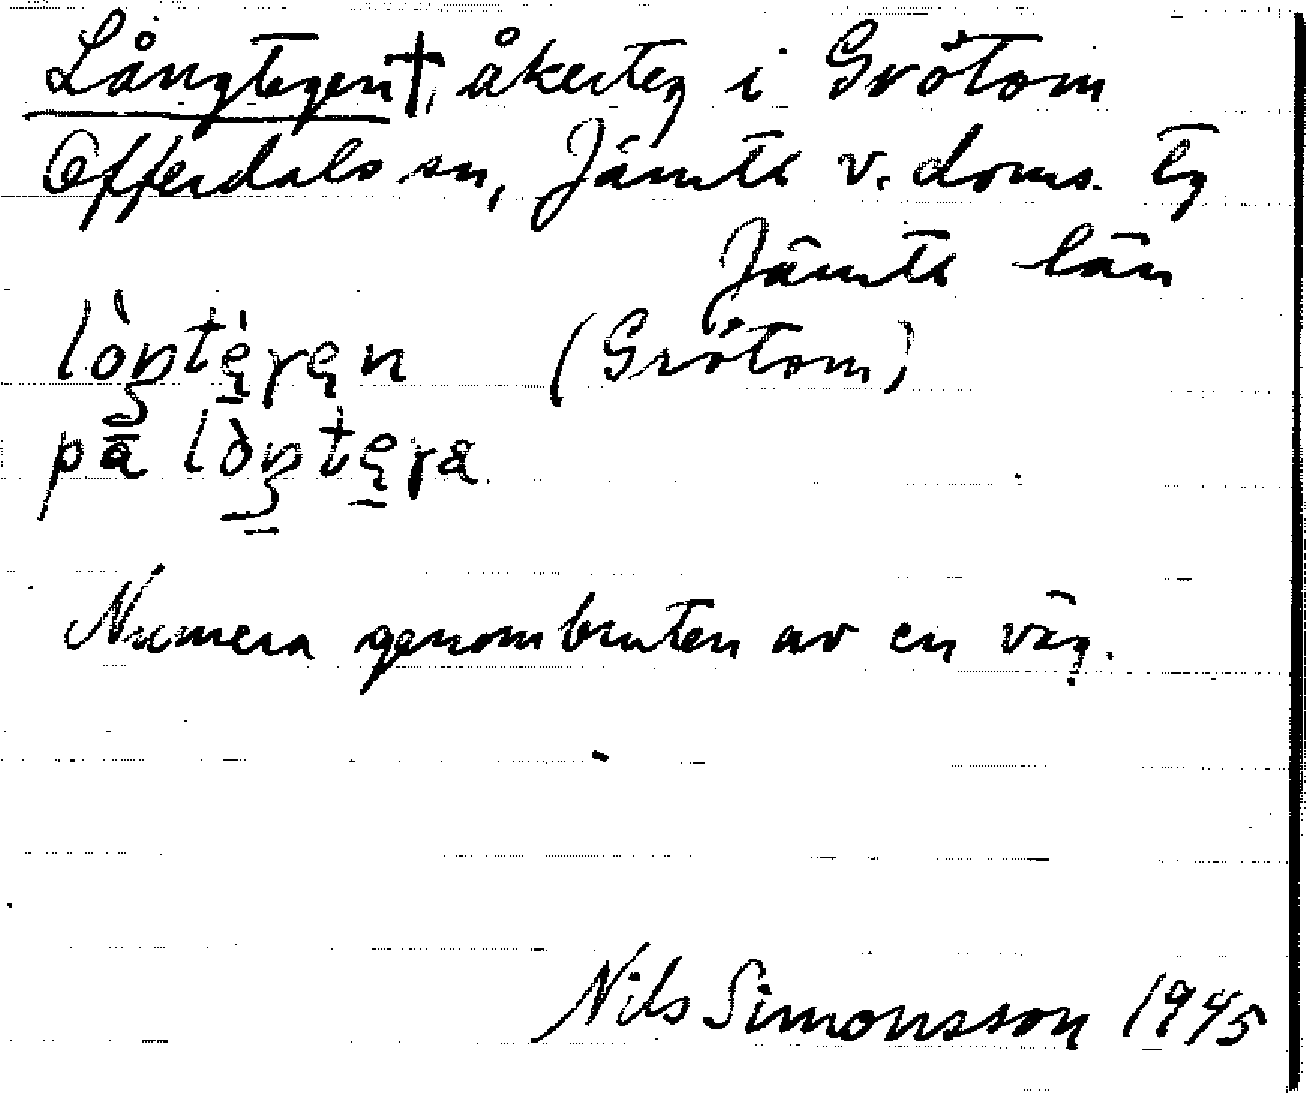 Långtegen†, åkerteg i Grötom
Offerdals sn, Jämtl v. doms. tg
Jämtl län
lòŋtèγen (Grötom)
pā lòŋteγa
Numera genombruten av en väg.
Nils Simonsson 1945